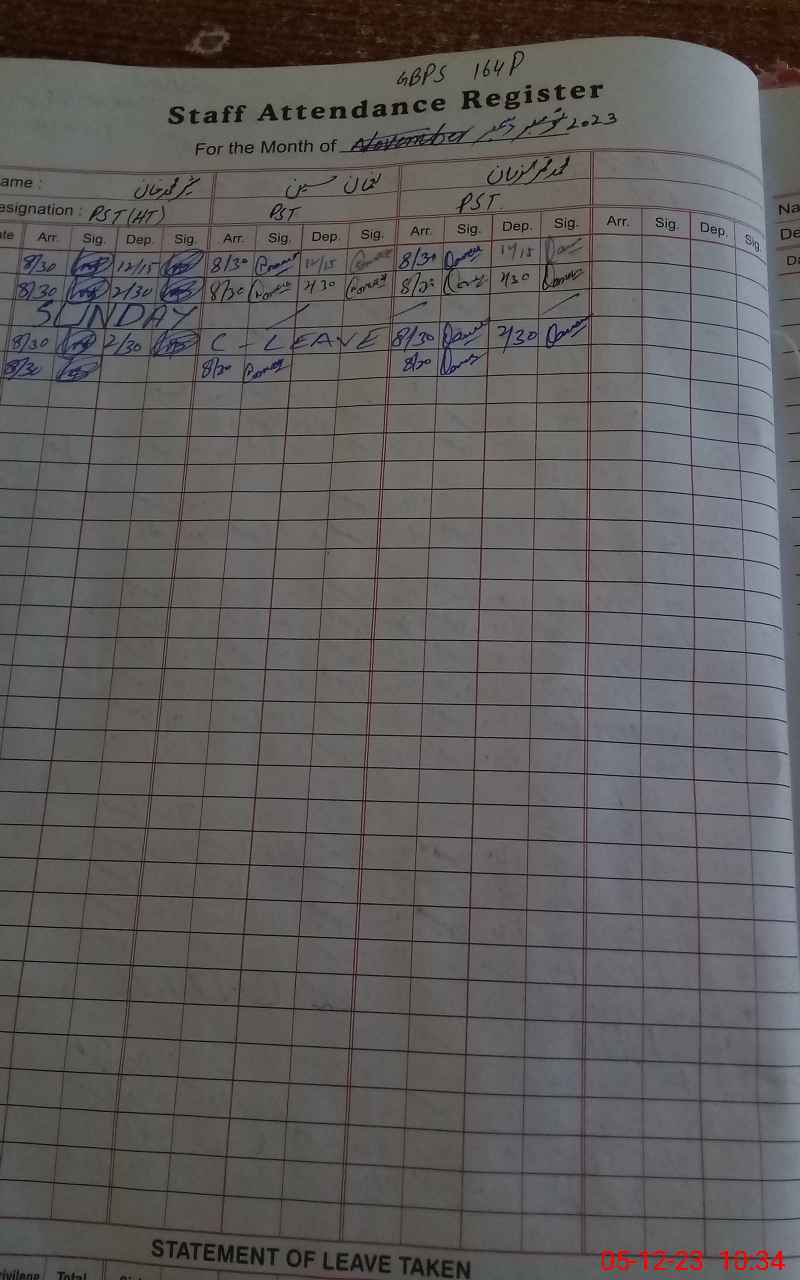 GBPS 164P
Staff Attendance Register
For the Month of November دسمبر 2023
ame : شیر محمد خان نعمان حسین
esignation : PST (HT) PST PST
ate Arr. Sig. Dep. Sig. Arr. Sig. Dep. Sig. Arr. Sig. Dep. Sig. Arr. Sig. Dep. Sig.
8/30 12/15 8/30 12/15 8/30 12/15
8/30 2/30 8/30 2/30 8/30 2/30
SUNDAY
8/30 2/30 C - LEAVE 8/30 2/30
8/30 8/30 8/30
STATEMENT OF LEAVE TAKEN
ivilege Total
Na
De
Da
05-12-23 10:34